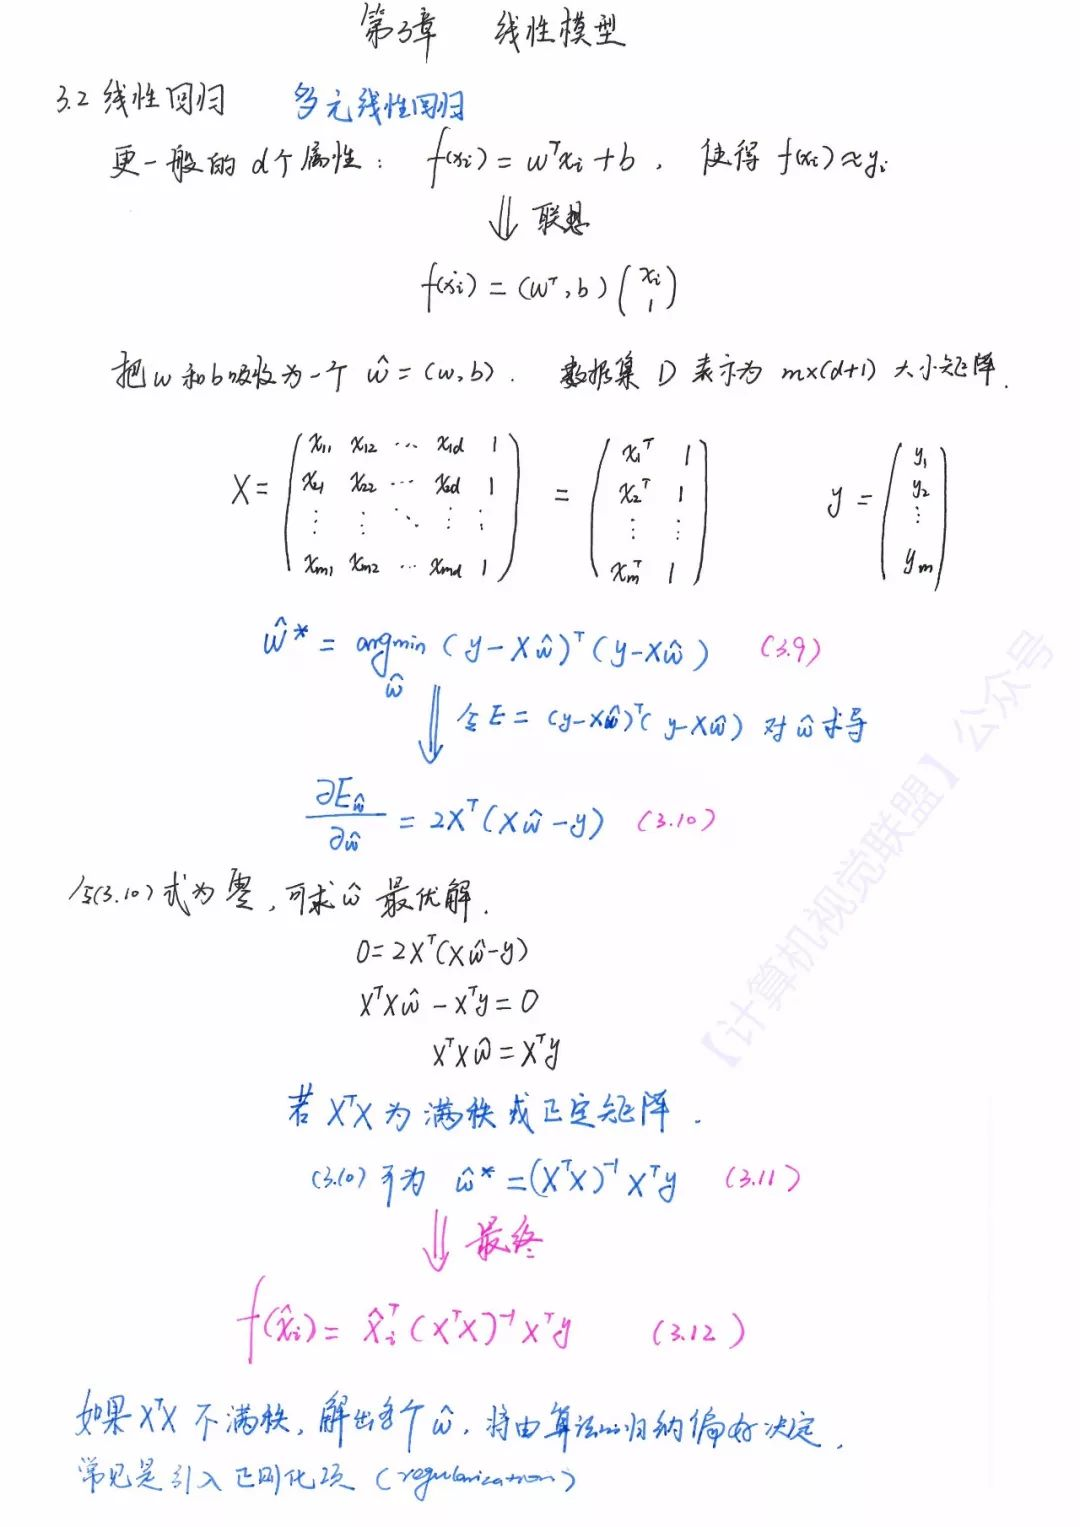 第3章 线性模型
3.2 线性回归 多元线性回归
更一般的 d个属性: f(xi) = wᵀxi + b, 使得 f(xi) ≈ yi
⇓ 联想
f(xi) = (wᵀ, b) (xi 1)
把w和b吸收为一个 ŵ = (w, b). 数据集 D 表示为 m×(d+1) 大小矩阵.
X = (x11 x12 ⋯ x1d 1
x21 x22 ⋯ x2d 1
⋮ ⋮ ⋱ ⋮ ⋮
xm1 xm2 ⋯ xmd 1)
= (x1ᵀ 1
x2ᵀ 1
⋮ ⋮
xmᵀ 1)
y = (y1
y2
⋮
ym)
ŵ* = argmin (y-Xŵ)ᵀ(y-Xŵ) (3.9)
ŵ
⇓ 令E = (y-Xŵ)ᵀ(y-Xŵ) 对ŵ求导
∂Eŵ/∂ŵ = 2Xᵀ(Xŵ-y) (3.10)
令(3.10)式为零, 可求ŵ最优解.
0 = 2Xᵀ(Xŵ-y)
XᵀXŵ - Xᵀy = 0
XᵀXŵ = Xᵀy
若XᵀX为满秩或正定矩阵.
(3.10)可为 ŵ* = (XᵀX)⁻¹Xᵀy (3.11)
⇓ 最终
f(x̂i) = x̂iᵀ(XᵀX)⁻¹Xᵀy (3.12)
如果XᵀX不满秩, 解出多个ŵ, 将由算法的归纳偏好决定,
常见是引入正则化项 (regularization)
【计算机视觉联盟】公众号